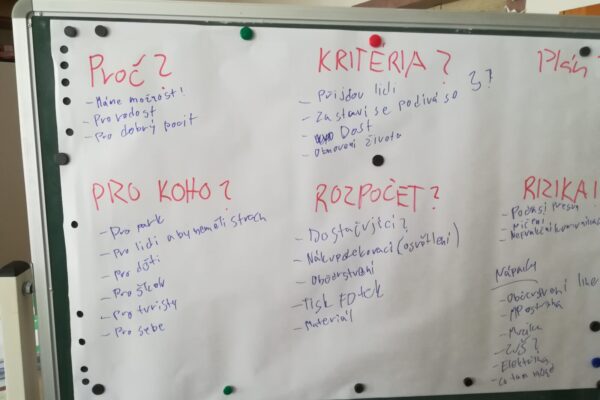 Proč?
- Máme možnost!
- Pro radost
- Pro dobrý pocit
KRITERIA?
- Přijdou lidi
- Zastaví se podívá se
- Dost
- Obnovení života
Plán
PRO KOHO?
- Pro park
- Pro lidi aby neměli strach
- Pro děti
- Pro školu
- Pro turisty
- Pro sebe
ROZPOČET?
- Dostačující?
- Nákup dekorací (osvětlení)
- Občerstvení
- Tisk FOTEK
- Materiál
RIZIKA!
- Počasí
- Ničení
- Nefunkční komunikace
Nápady
- Občerstvení
- MP ostraha
- Muzika
- ZUŠ?
- Elektrika
- Co tam